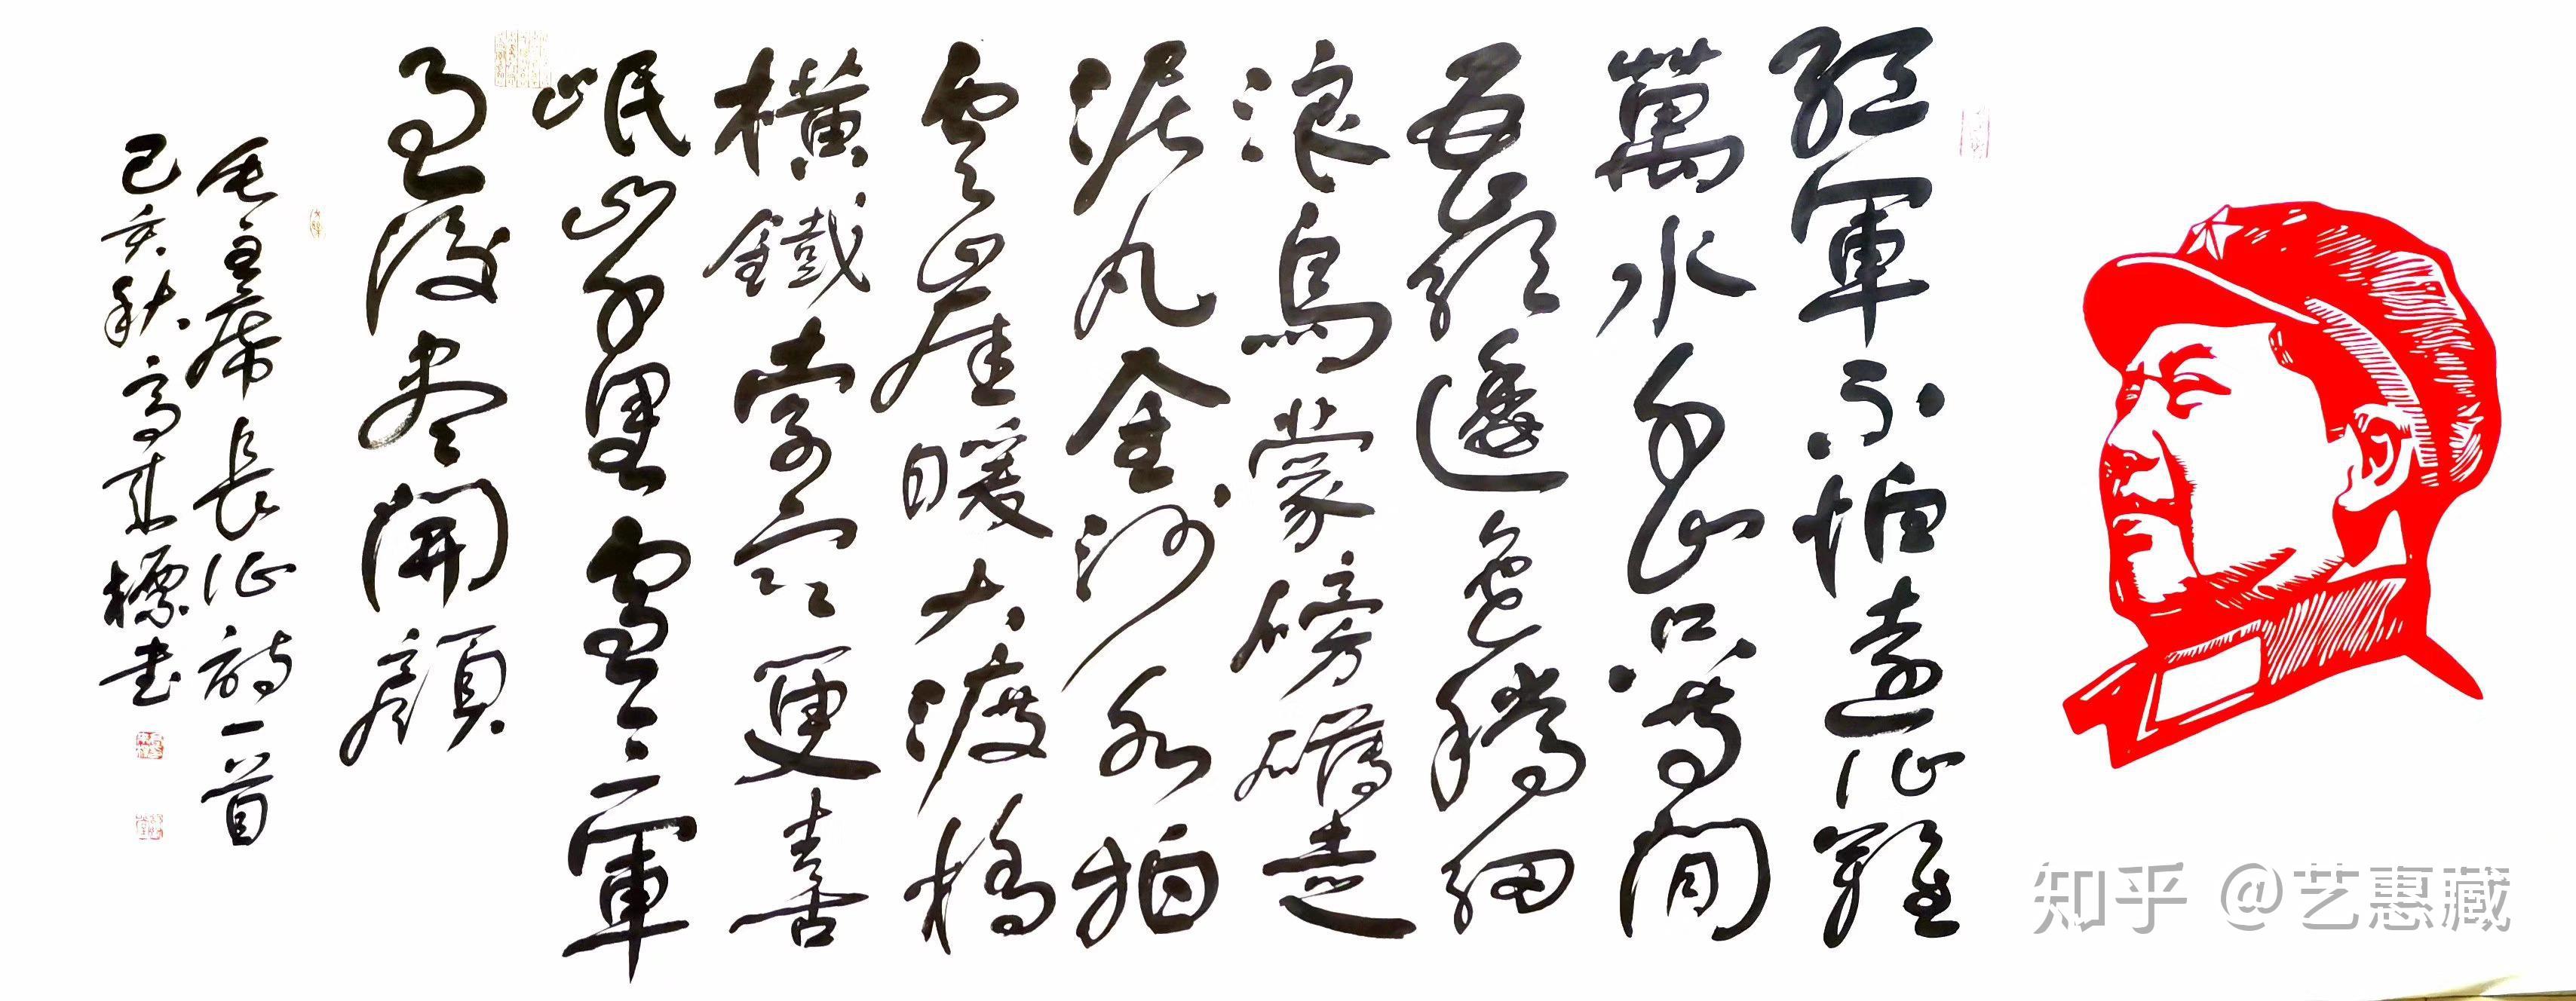 紅軍不怕遠征難
萬水千山只等閒
五嶺逶迤騰細
浪烏蒙磅礴走
泥丸金沙水拍
云崖暖大渡橋
橫鐵索寒更喜
岷山千里雪三軍
過後尽開顏
毛主席長征詩一首
己亥秋高標书
知乎 @艺惠藏